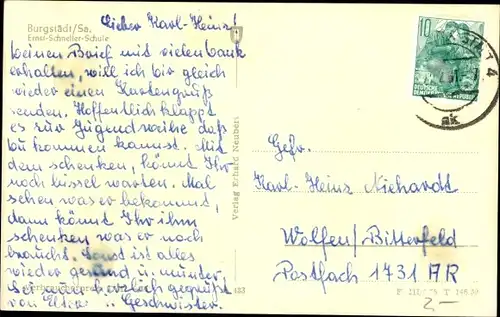 Burgstädt/Sa.
Ernst-Schneller-Schule
Lieber Karl-Heinz!
Deinen Brief mit vielen Dank
erhalten, will ich dir gleich
wieder einen Kartengruß
senden. Hoffentlich klappt
es zur Jugendweihe daß
Du kommen kannst. Mit
dem schenken, könnt Ihr
noch bissel warten. Mal
sehen was er bekommt,
dann könnt Ihr ihm
schenken was er noch
braucht. Sonst ist alles
wieder gesund u. munter.
Sei nun herzlich gegrüßt
von Eltern u. Geschwister.
Verlag Erhard Neubert
183
10
DEUTSCHE
DEMOKR
ak
Gefr.
Karl-Heinz Niehardt
Wolfen/Bitterfeld
Postfach 1731 AR
2,-